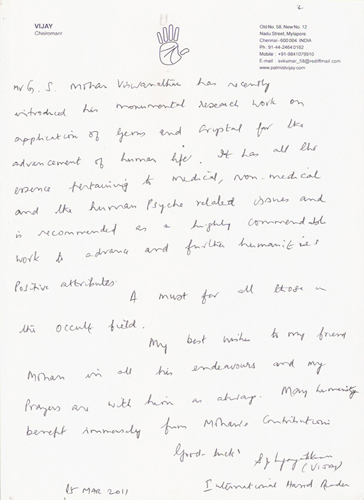 VIJAY
Cheiromani
Old No. 58, New No. 12
Nadu Street, Mylapore
Chennai-600 004. INDIA
Ph: 91-44-24640162
Mobile : +91-9841079910
E-mail :
www.palmistvijay.com
Mr G. S. Mohan Viswanathan has recently
introduced his monumental research work on
application of Gems and Crystal for the
advancement of human life. It has all the
essence pertaining to medical, non-medical
and the human Psyche related issues and
is recommended as a highly commendable
work to advance and further humanities
Positive attributes
A must for all those in
the occult field.
My best wishes to my friend
Mohan in all his endeavours and my
Prayers are with him as always. May humanity
benefit immensely from Mohan's Contribution
Good luck!
(VIJAY)
15 MAR 2011
International Hand Reader